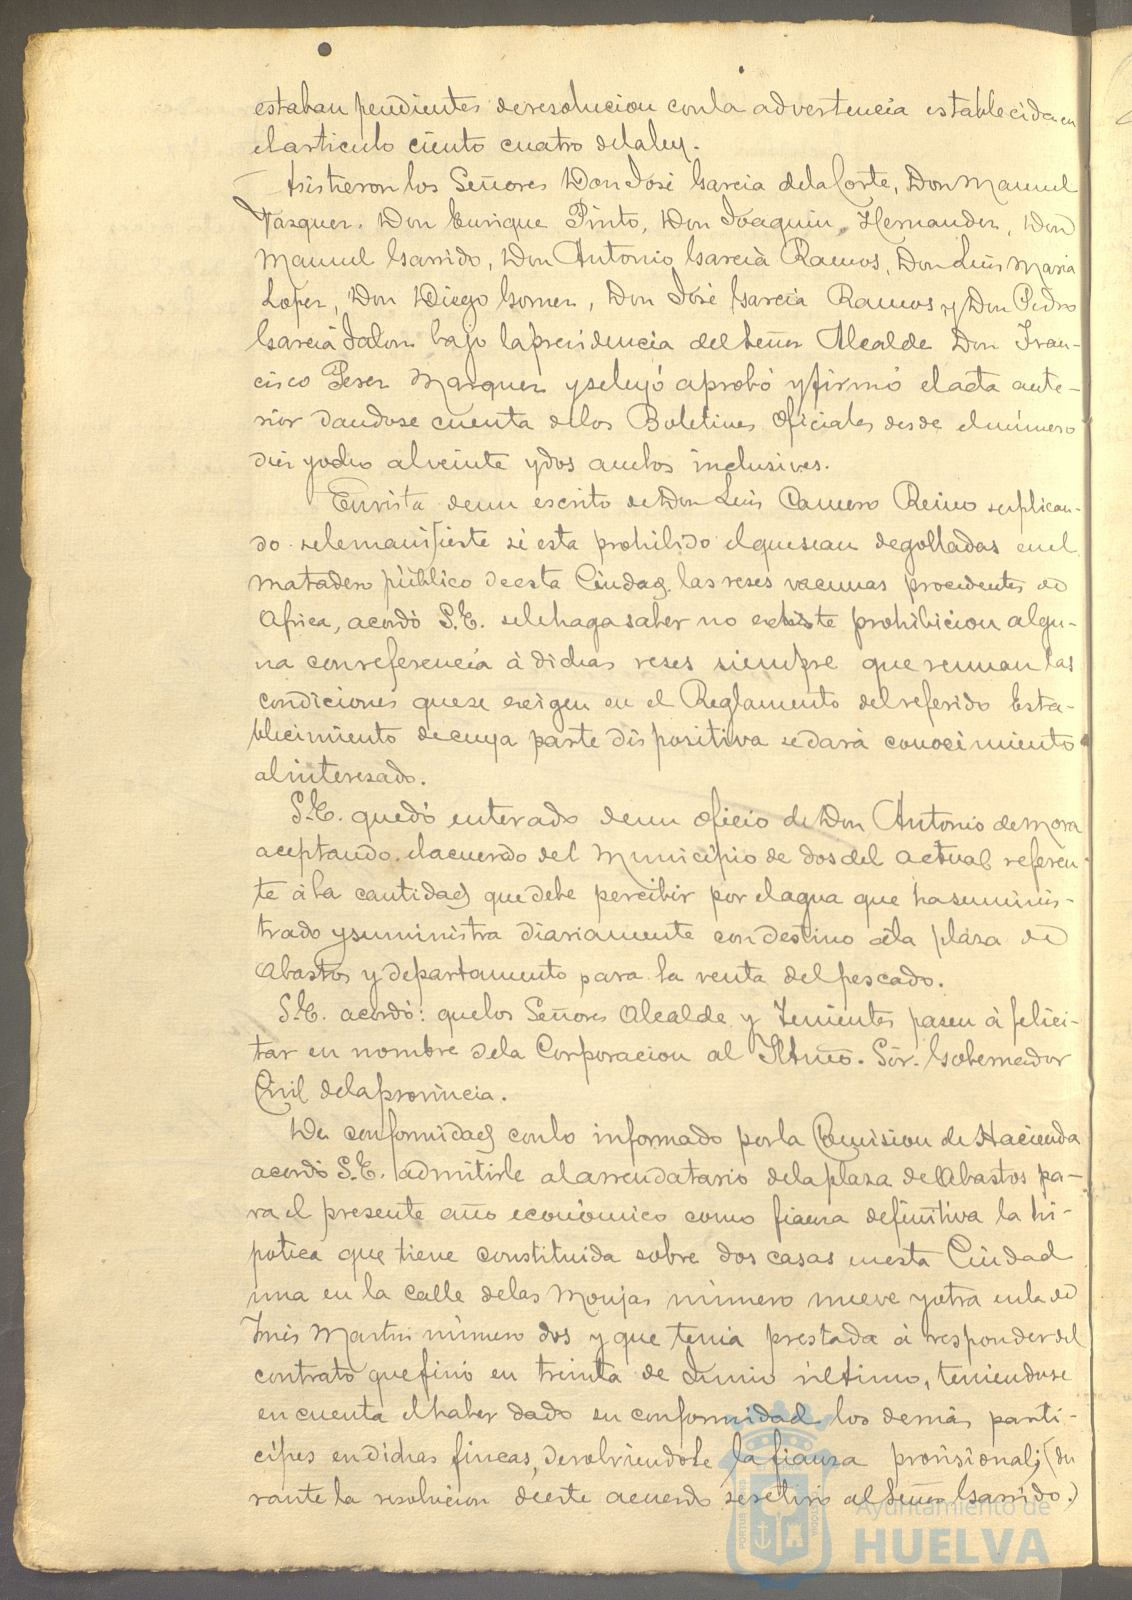 estaban pendientes de resolucion con la advertencia establecida en
el articulo ciento cuatro de la ley.
Asistieron los Señores Don José Garcia de la Corte, Don Manuel
Vazquez, Don Enrique Pinto, Don Joaquin Hernandez, Don
Manuel Garrido, Don Antonio Garcia Ramos, Don Luis Maria
Lopez, Don Diego Gomez, Don José Garcia Ramos y Don Pedro
Garcia Jalon bajo la presidencia del Señor Alcalde Don Fran-
cisco Perez Marquez y se leyó aprobó y firmó el acta ante-
rior dandose cuenta de los Boletines Oficiales desde el número
diez y ocho al veinte y dos ambos inclusives.
En vista de un escrito de Don Luis Camero Reino suplican-
do se le manifieste si esta prohibido el que sean degolladas en el
matadero público de esta Ciudad las reses vacunas procedentes de
Africa, acordó S.E. se le haga saber no existe prohibicion algu-
na con referencia á dichas reses siempre que reunan las
condiciones que se exigen en el Reglamento del referido Esta-
blecimiento de cuya parte dispositiva se dará conocimiento
al interesado.
S.E. quedó enterado de un oficio de Don Antonio de Mora
aceptando el acuerdo del Municipio de dos del actual referen-
te á la cantidad que debe percibir por el agua que ha suminis-
trado y suministra diariamente con destino á la plaza de
Abastos y departamento para la venta del pescado.
S.E. acordó: que los Señores Alcalde y Tenientes pasen á felici-
tar en nombre de la Corporacion al Iltmo. Sór. Gobernador
Civil de la provincia.
De conformidad con lo informado por la Comision de Hacienda
acordó S.E. admitirle al arrendatario de la plaza de Abastos pa-
ra el presente año económico como fianza definitiva la hi-
poteca que tiene constituida sobre dos casas en esta Ciudad
una en la calle de las Monjas número nueve y otra en la de
Inés Martin número dos y que tenia prestada á responder del
contrato que finó en treinta de Junio último, teniendose
en cuenta el haber dado su conformidad los demás parti-
cipes en dichas fincas, devolviendole la fianza provisional; (du
rante la resolucion de este acuerdo se retiró el Señor Garrido.)
Ayuntamiento de
HUELVA